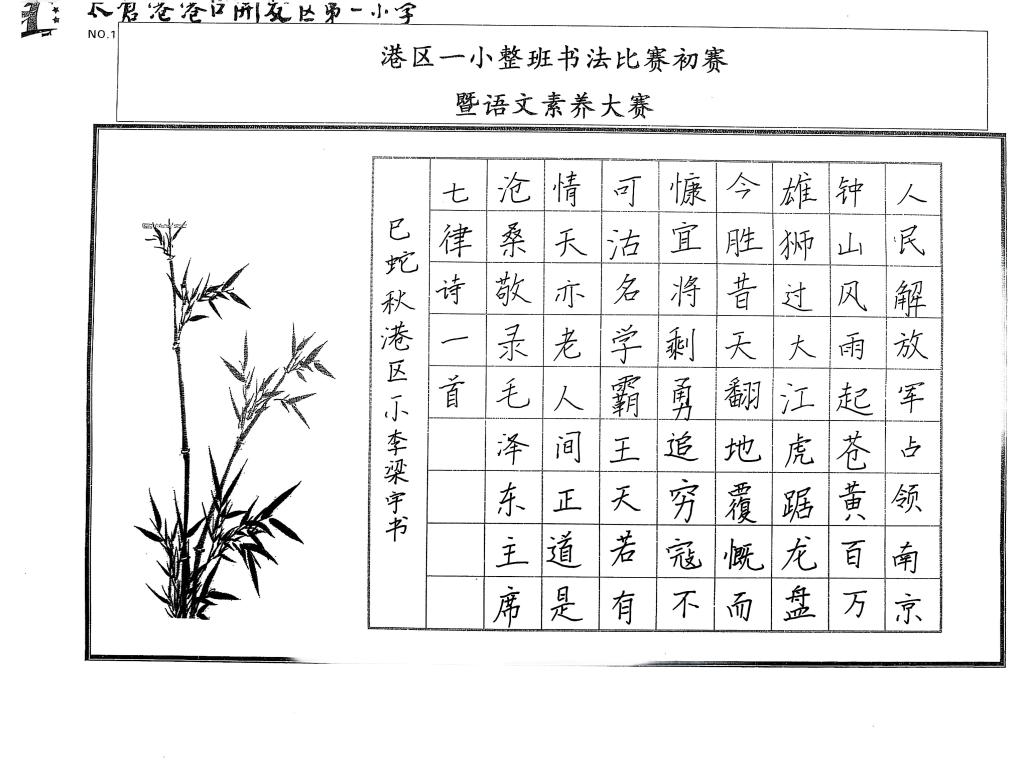 太倉港港口開发区第一小学
NO.1
港区一小整班书法比赛初赛
暨语文素养大赛
人民解放军占领南京
钟山风雨起苍黄百万
雄狮过大江虎踞龙盘
今胜昔天翻地覆慨而
慷宜将剩勇追穷寇不
可沽名学霸王天若有
情天亦老人间正道是
沧桑敬录毛泽东主席
七律诗一首
巳蛇秋港区一小李梁宇书